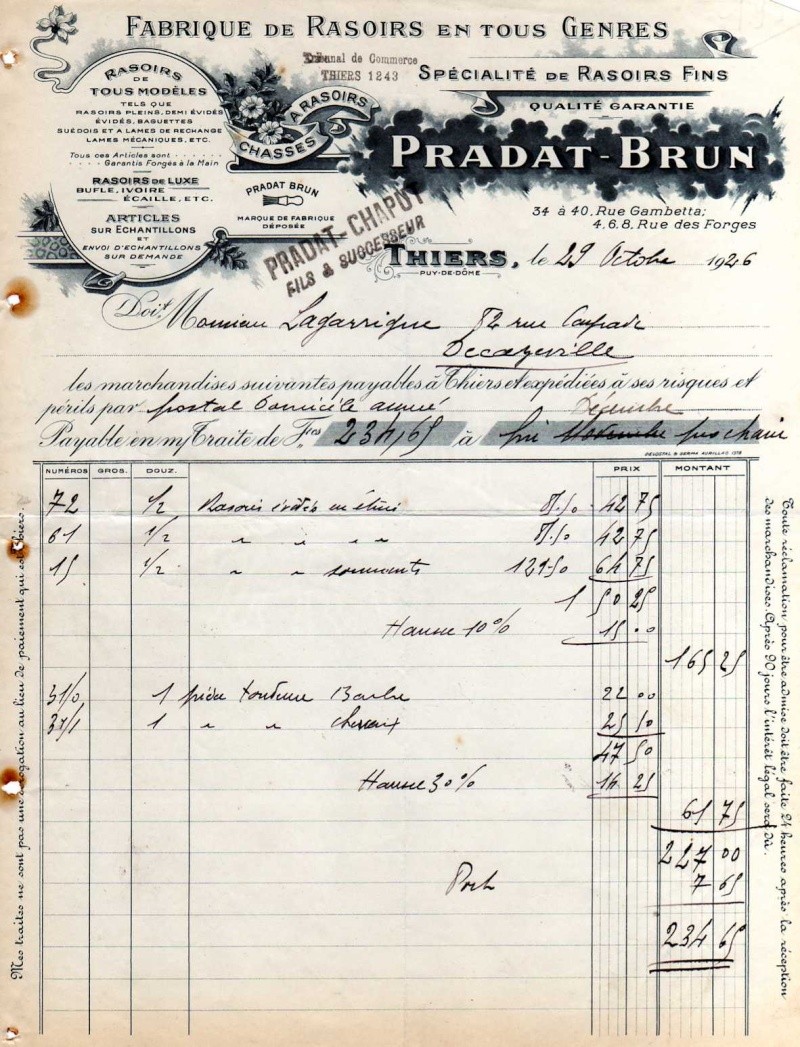 FABRIQUE DE RASOIRS EN TOUS GENRES
Tribunal de Commerce
THIERS 1243
SPÉCIALITÉ DE RASOIRS FINS
QUALITÉ GARANTIE
RASOIRS
DE
TOUS MODÈLES
TELS QUE
RASOIRS PLEINS, DEMI ÉVIDÉS
ÉVIDÉS, BAGUETTES
SUÉDOIS ET A LAMES DE RECHANGE
LAMES MÉCANIQUES, ETC.
Tous ces Articles sont
Garantis Forgés à la Main
RASOIRS DE LUXE
BUFLE, IVOIRE
ÉCAILLE, ETC.
ARTICLES
SUR ECHANTILLONS
ET
ENVOI D'ECHANTILLONS
SUR DEMANDE
CHASSES A RASOIRS
PRADAT BRUN
MARQUE DE FABRIQUE
DÉPOSÉE
PRADAT-BRUN
34 à 40, Rue Gambetta;
4, 6, 8, Rue des Forges
PRADAT-CHAPUT
FILS & SUCCESSEUR
THIERS, le 29 Octobre 1926
PUY-DE-DÔME
Doit Monsieur Lagarrigue 52 rue
Decazeville
les marchandises suivantes payables à Thiers et expédiées à ses risques et
périls par postal domicile Décembre
Payable en m/Traite de Fcs 234,65 à fin Novembre prochain
NUMÉROS GROS. DOUZ. PRIX MONTANT
72 1/2 Rasoirs évidés en étuis 85.50 42 75
61 1/2 " " " 85.50 42 75
15 1/2 " " 129.50 64 75
1 50 25
Hausse 10% 15 00
165 25
1 pièce tondeuse Barbe 22 00
1 " " cheveux 25 50
47 50
Hausse 30% 14 25
61 75
227 00
Port 7 65
234 65
Mes traites ne sont pas une dérogation au lieu de paiement qui est Thiers.
Toute réclamation pour être admise doit être faite 24 heures après la réception
des marchandises. Après 90 jours l'intérêt légal sera dû.